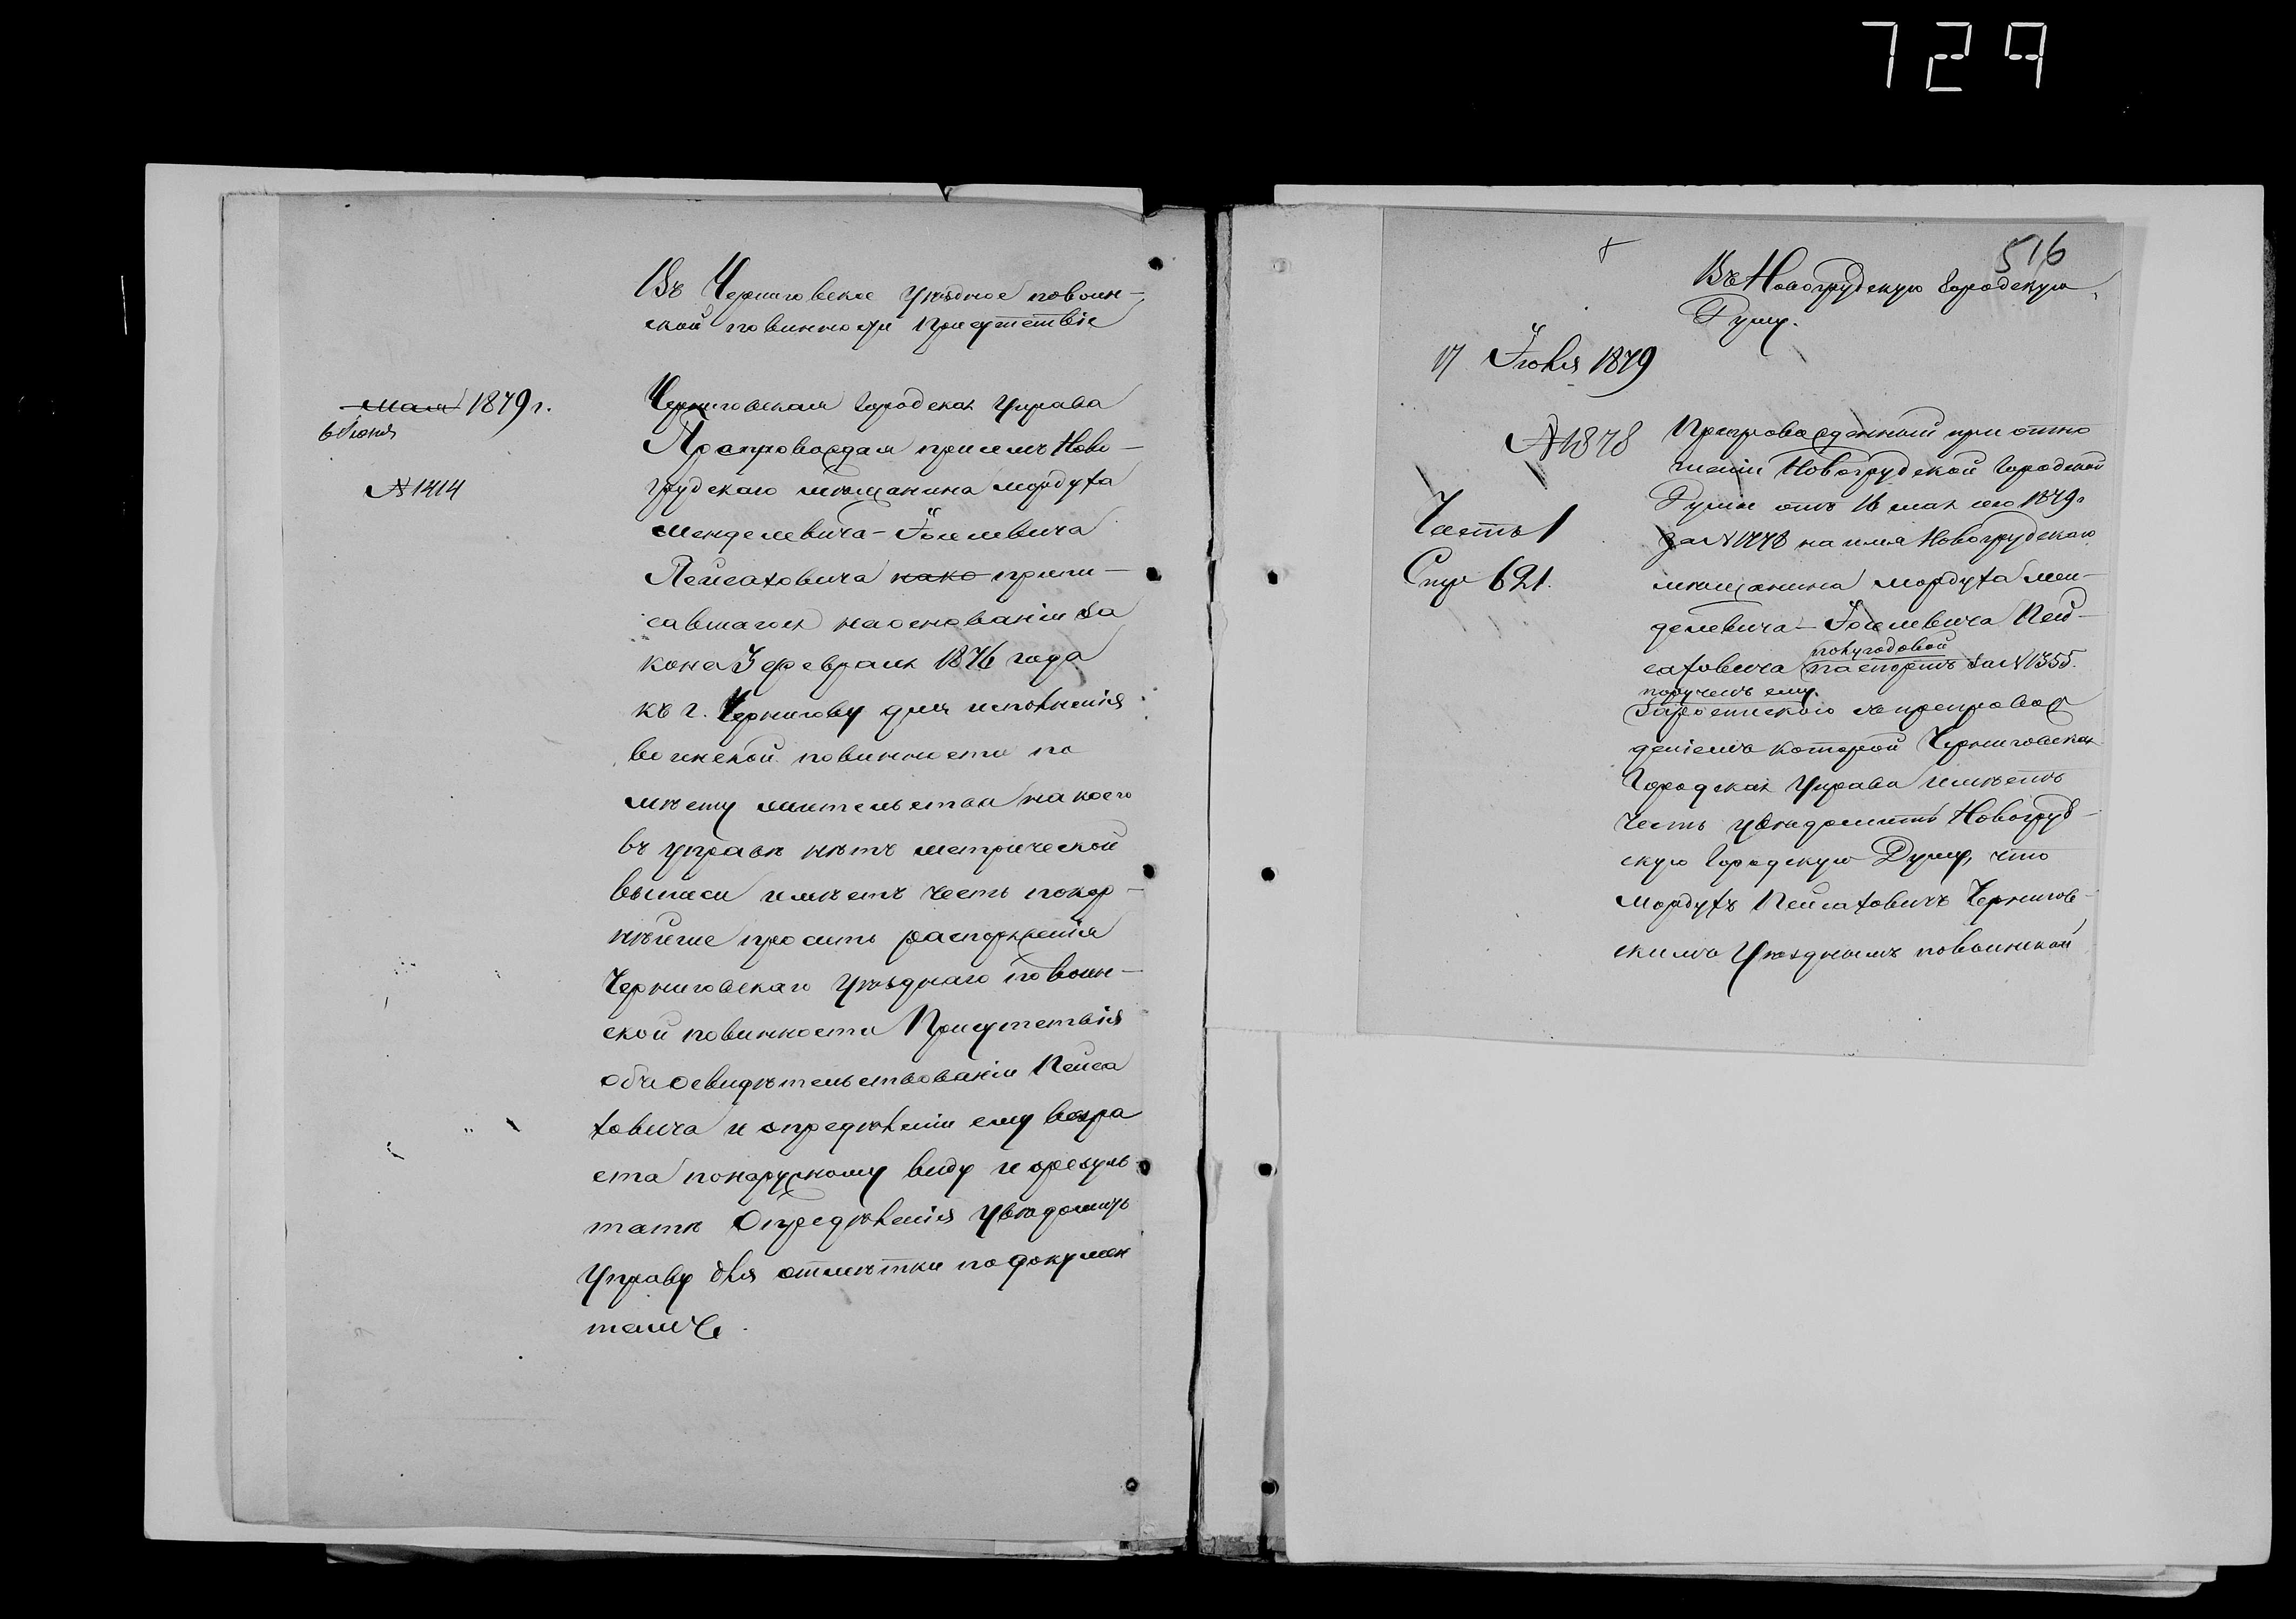 729
Въ Черниговское уѣздное повоин-
ской повинности Присутствіе
Мая 1879 г.
6 Іюня
№ 1414
Черниговская Городская Управа
Препровождая присемъ Ново-
грудскаго мѣщанина Мордуха
Менделевича-Іоселевича
Пейсаховича како припи-
савшагося на основаніи За
кона 3 февраля 1876 года
къ г. Чернигову для исполненія
воинской повинности по
мѣсту жительства на коего
въ управѣ нѣтъ метрической
выписи имѣетъ честь покор-
нѣйше просить распоряженія
Черниговскаго уѣзднаго повоин-
ской повинности Присутствія
объ освидѣтельствованіи Пейса
ховича и опредѣленіи ему возра
ста по наружному виду и о резуль-
татѣ Опредѣленія увѣдомить
Управу для отмѣтки по докумен
тамъ.
516
Въ Новогрудскую Городскую
Думу.
17 Іюля 1879
№ 1878
Часть 1
Стр 621.
Препровожденный при отно
шеніи Новогрудской Городской
Думы отъ 16 мая сего 1879 г
за № 1448 на имя Новогрудскаго
мѣщанина Мордуха Мен-
делевича-Іоселевича Пей-
полугодовой
саховича паспортъ за № 1355.
порученъ ему.
Зароспискою съ препровож
деніемъ которой Черниговская
Городская Управа имѣетъ
честь увѣдомить Новогруд-
скую Городскую Думу, что
Мордухъ Пейсаховичъ Чернигов-
скимъ Уѣзднымъ повоинской